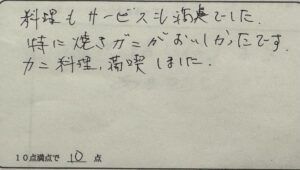 料理もサービスも満点でした.
特に焼きガニがおいしかったです.
カニ料理,満喫しました.
10点満点で 10 点